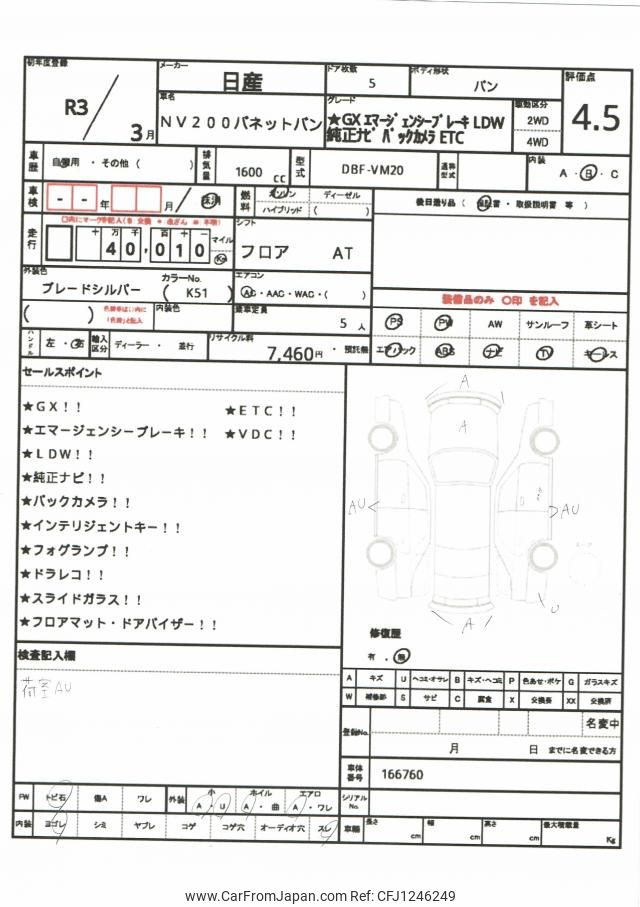 初年度登録
R3
3月
メーカー
日産
ドア枚数
5
ボディ形状
バン
評価点
4.5
車名
NV200バネットバン
グレード
★GXエマージェンシーブレーキLDW
純正ナビバックカメラETC
駆動区分
2WD
4WD
車歴
自家用・その他(　)
排気量
1600 cc
型式
DBF-VM20
通称型式
内装
A・B・C
車検
- - 年 月
抹消
燃料
ガソリン ディーゼル
ハイブリッド (　)
後日送り品 (保証書・取扱説明書 等)
走行
十 万 千 百 十 一
40,010
マイル
Km
シフト
フロア AT
外装色
ブレードシルバー
カラーNo.
(K51)
エアコン
AC・AAC・WAC・(　)
内装色
乗車定員
5人
装備品のみ 〇印 を記入
PS PW AW サンルーフ 革シート
エアバック ABS ナビ TV キーレス
ハンドル
左・右
輸入区分
ディーラー・並行
リサイクル料
7,460円・預託無
セールスポイント
★GX!! ★ETC!!
★エマージェンシーブレーキ!! ★VDC!!
★LDW!!
★純正ナビ!!
★バックカメラ!!
★インテリジェントキー!!
★フォグランプ!!
★ドラレコ!!
★スライドガラス!!
★フロアマット・ドアバイザー!!
A
A
AU
AU
A
U
修復歴
有・無
検査記入欄
荷室AU
A キズ U ヘコミ・オサレ B キズ・ヘコミ P 色あせ・ボケ G ガラスキズ
W 補修跡 S サビ C 腐食 X 交換要 XX 交換済
登録No.
名変中
月 日 までに名変できる方
車体番号
166760
シリアルNo.
FW トビ石 傷A ワレ
外装 小 A U ホイル A・曲 エアロ A・ワレ
内装 ヨゴレ シミ ヤブレ コゲ コゲ穴 オーディオ穴 スレ
車輌 長さ cm 幅 cm 高さ cm 最大積載量 Kg
www.CarFromJapan.com Ref: CFJ1246249